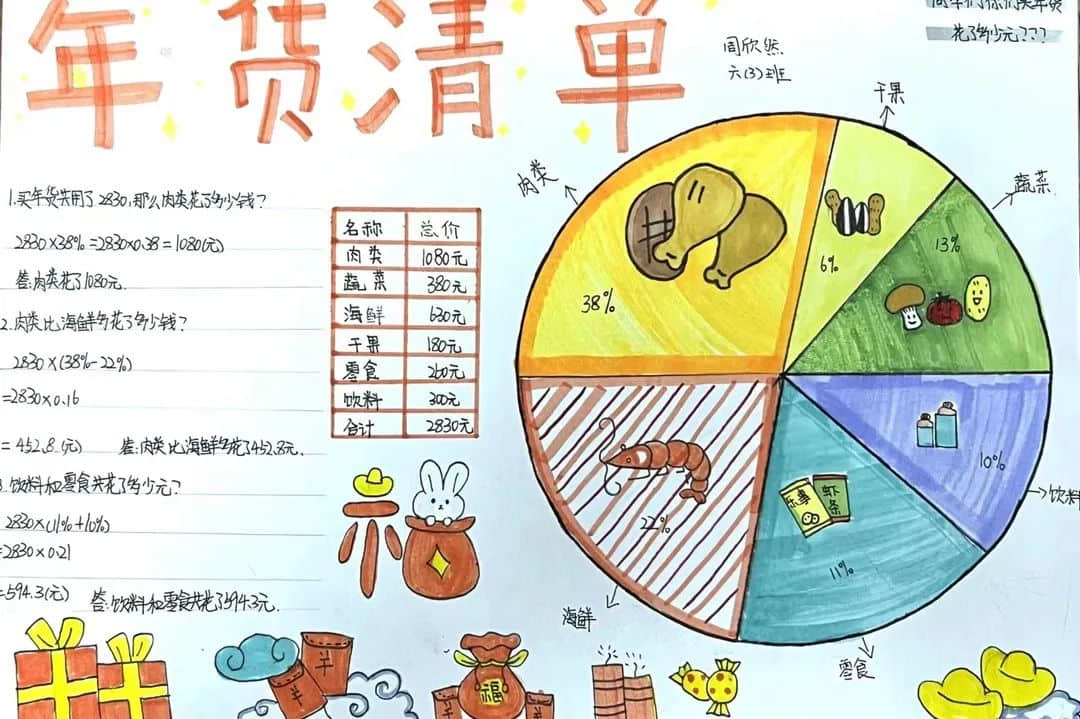 年货清单
周欣然
六(3)班
花了多少元???
1.买年货共用了2830,那么肉类花了多少钱?
2830×38%=2830×0.38=1080(元)
答:肉类花了1080元.
2.肉类比海鲜多花了多少钱?
2830×(38%-22%)
=2830×0.16
=452.8(元) 答:肉类比海鲜多花了452.8元.
饮料和零食共花了多少元?
2830×(11%+10%)
=2830×0.21
=594.3(元) 答:饮料和零食共花了594.3元.
名称 总价
肉类 1080元
蔬菜 380元
海鲜 630元
干果 180元
零食 260元
饮料 300元
合计 2830元
肉类
38%
干果
6%
蔬菜
13%
饮料
10%
零食
11%
乐事
虾条
海鲜
22%
福